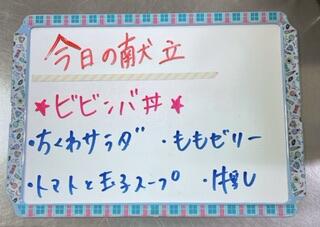 今日の献立
★ビビンバ丼★
・ちくわサラダ ・ももゼリー
・トマトと玉子スープ ・牛乳